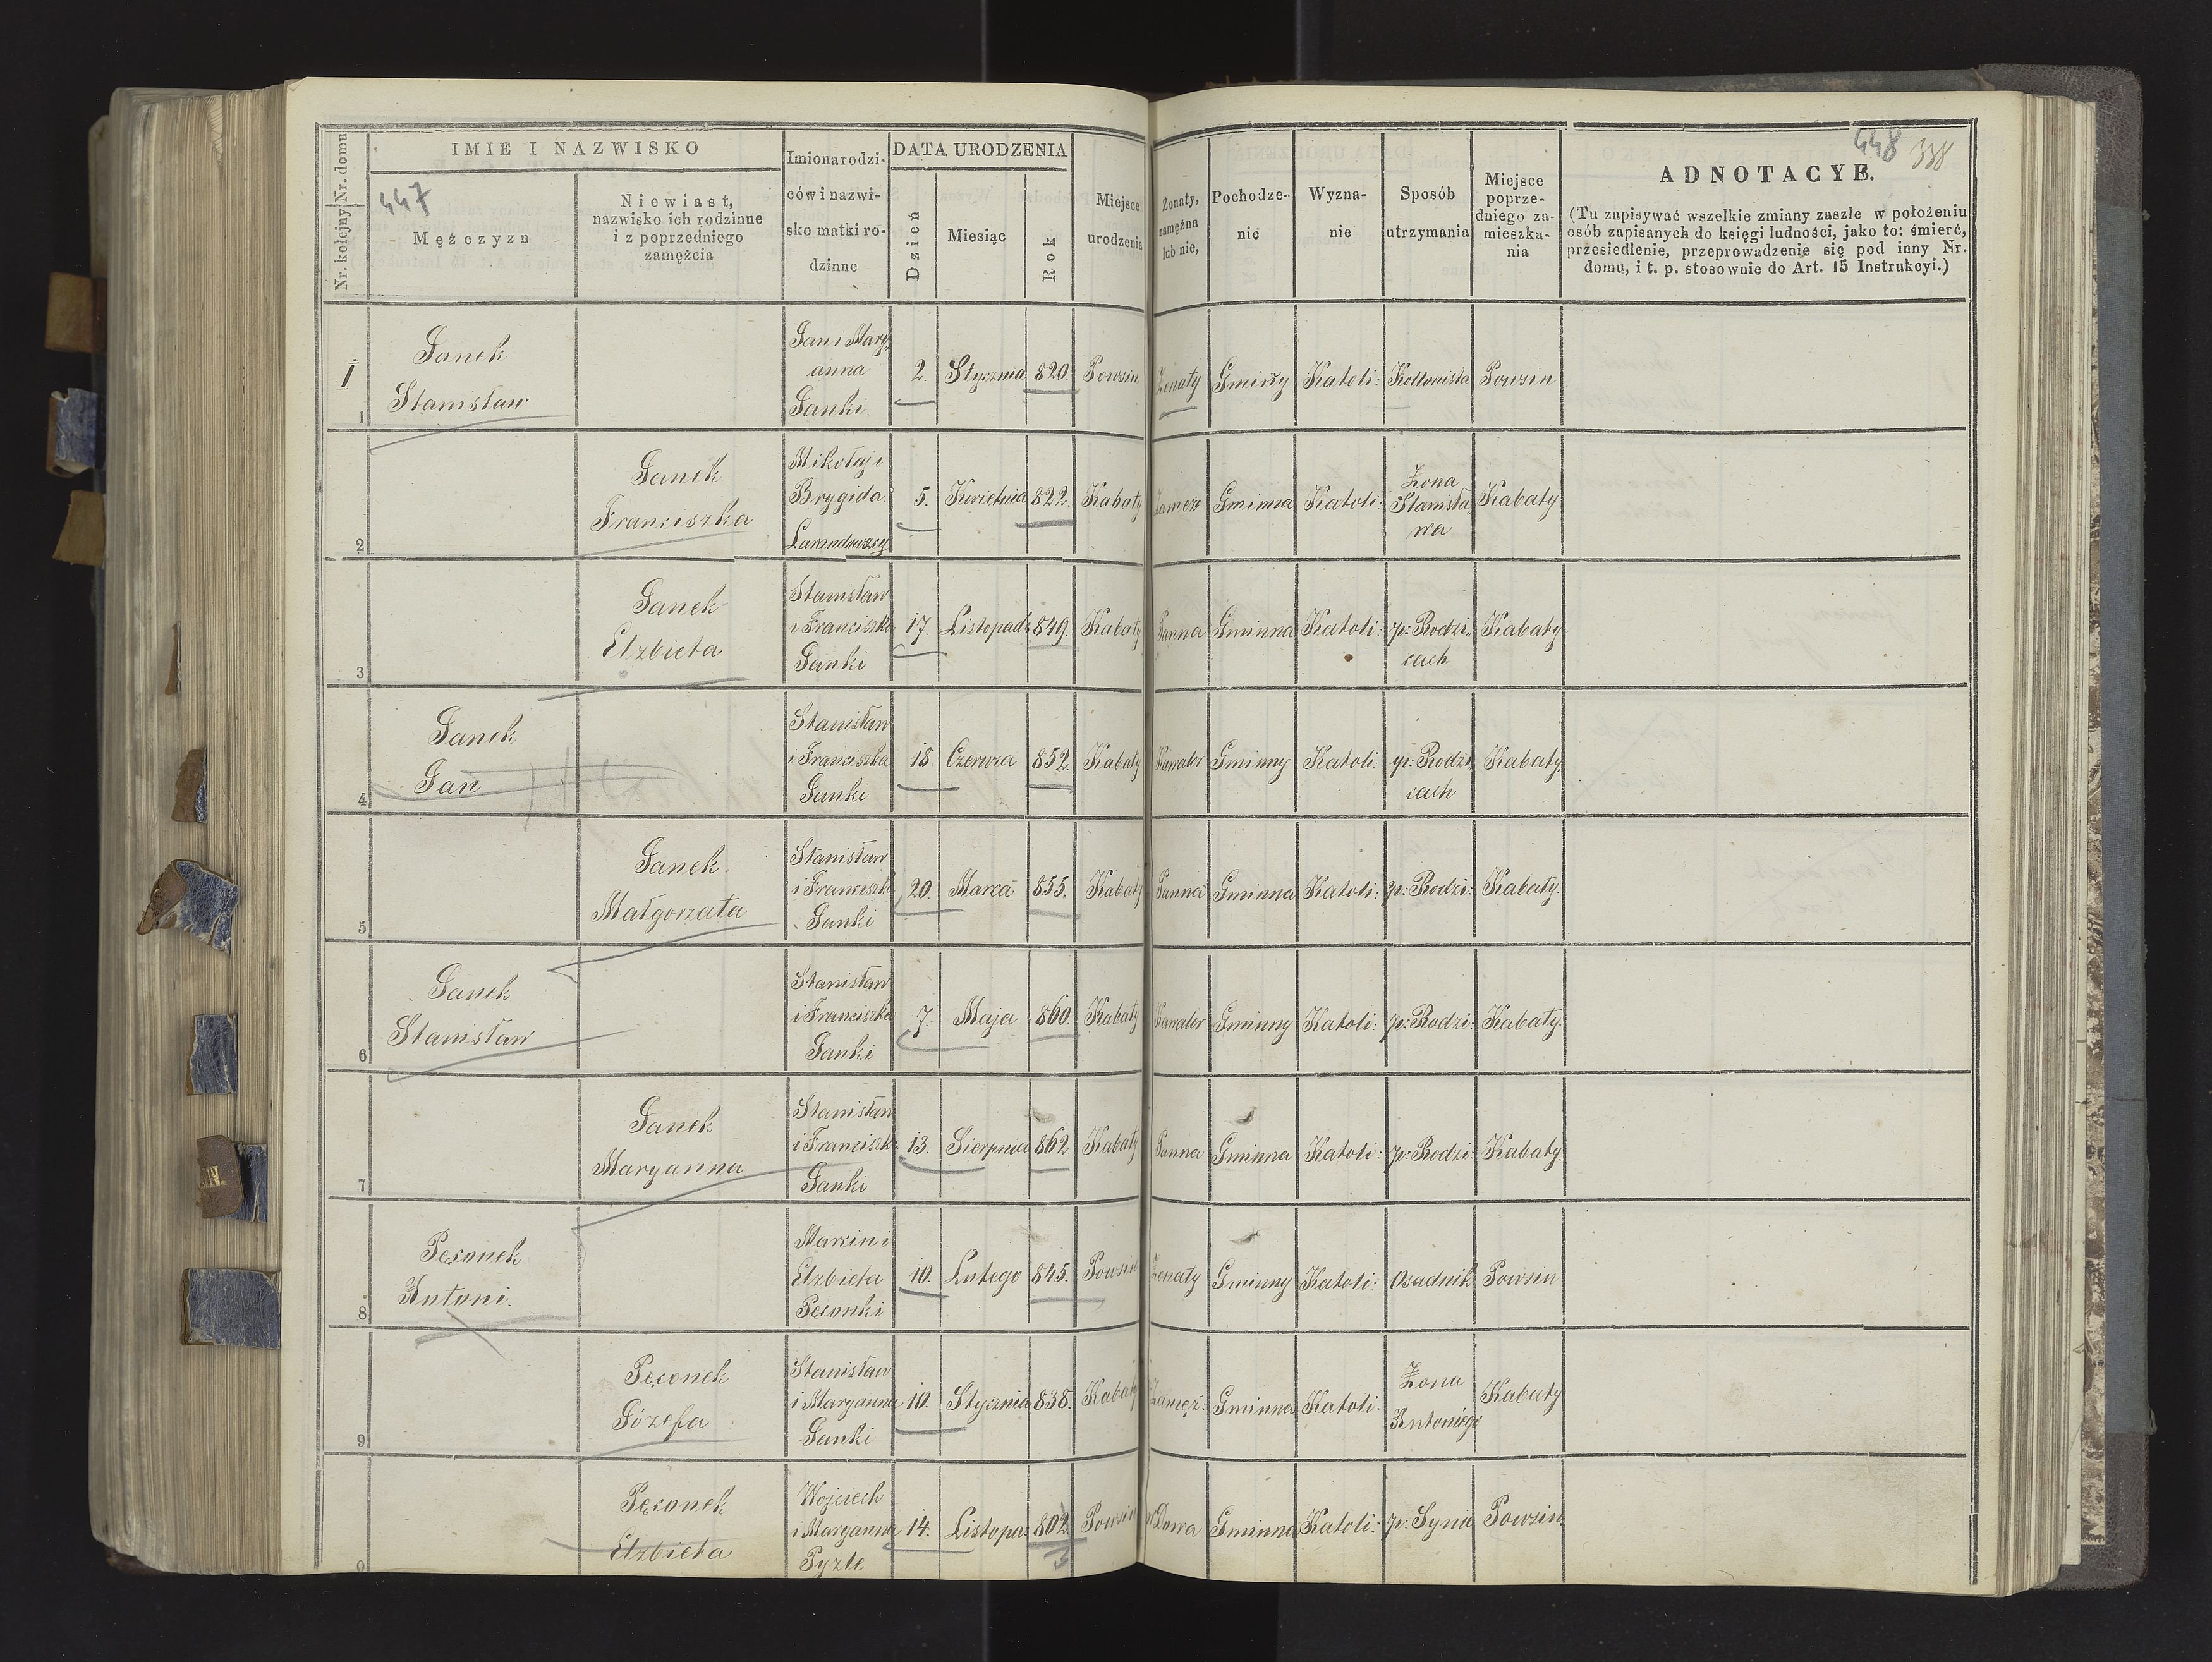 447
448 338
Nr. kolejny Nr. domu
IMIE I NAZWISKO
Mężczyzn
Niewiast,
nazwisko ich rodzinne
i z poprzedniego
zamęźcia
Imiona rodzi-
ców i nazwi-
sko matki ro-
dzinne
DATA URODZENIA
Dzień
Miesiąc
Rok
Miejsce
urodzenia
Żonaty,
zamężna
lub nie,
Pochodze-
nie
Wyzna-
nie
Sposób
utrzymania
Miejsce
poprze-
dniego za-
mieszka-
nia
ADNOTACYE.
(Tu zapisywać wszelkie zmiany zaszłe w położeniu
osób zapisanych do księgi ludności, jako to: śmierć,
przesiedlenie, przeprowadzenie się pod inny Nr.
domu, i t. p. stosownie do Art. 15 Instrukcyi.)
1
1
Janek
Stanisław
Jan i Mary
anna
Janki.
2. Stycznia 820. Powsin Żonaty Gminny Katoli: Kollonista Powsin
2
Janek
Franciszka
Mikołaj i
Brygida
5. Kwietnia 822. Kabaty Zamęż Gminna Katoli:
Żona
Stanisła
wa
Kabaty
3
Janek
Elzbieta
Stanisław
i Franciszka
Janki
17. Listopada 849. Kabaty Panna Gminna Katoli:
p: Rodzi,
cach
Kabaty
4
Janek
Jan
Stanisław
i Franciszka
Janki
18 Czerwca 852. Kabaty Kawaler Gminny Katoli:
p: Rodzi
cach
Kabaty
5
Janek
Małgorzata
Stanisław
i Franciszka
Janki
20. Marca 855. Kabaty Panna Gminna Katoli: p: Rodzi: Kabaty.
6
Janek
Stanisław
Stanisław
i Franciszka
Janki
7. Maja 860. Kabaty Kawaler Gminny Katoli: p: Rodzi: Kabaty.
7
Janek
Maryanna
Stanisław
i Franciszka
Janki
13. Sierpnia 862. Kabaty Panna Gminna Katoli: p: Rodzi: Kabaty.
8
Pęconek
Antoni.
Marcin i
Elzbieta
Pęconki
10. Lutego 845. Powsin Żonaty Gminny Katoli: Osadnik Powsin
9
Pęconek
Józefa
Stanisław
i Maryanna
Janki
10. Stycznia 838. Kabaty Zamęż: Gminna Katoli.
Żona
Antoniego
Kabaty
0
Pęconek
Elzbieta
Wojciech
i Maryanna
Pyzle
14. Listopa: 802. Powsin Wdowa Gminna Katoli: p: Synie Powsin.